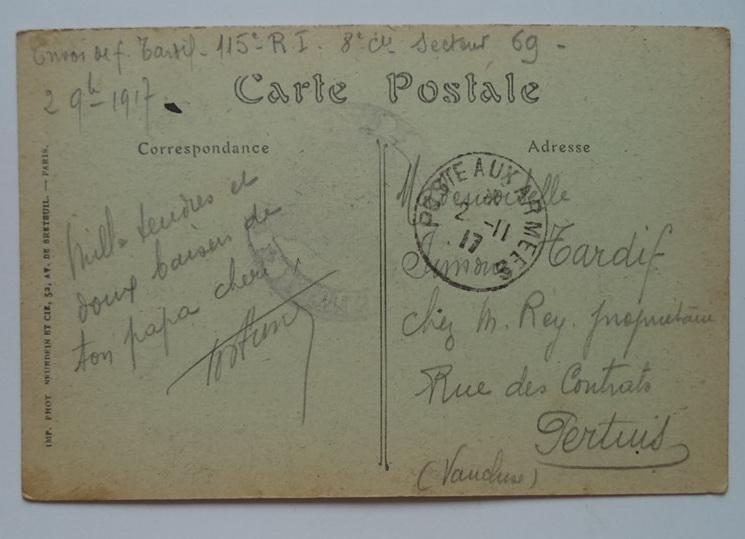 Envoi de f. Tardif - 115e R. I. 8e Cie Secteur 69 -
2 9b - 1917
Carte Postale
Correspondance
Adresse
Mille tendres et
doux baisers de
ton papa cheri
Mademoiselle
Simone Tardif
chez M. Rey. propriétaire
Rue des Contrats
Pertuis
(Vaucluse)
POSTE AUX ARMEES
2 -11
17
IMP. PHOT. NEURDEIN ET CIE, 52, AV. DE BRETEUIL. — PARIS.